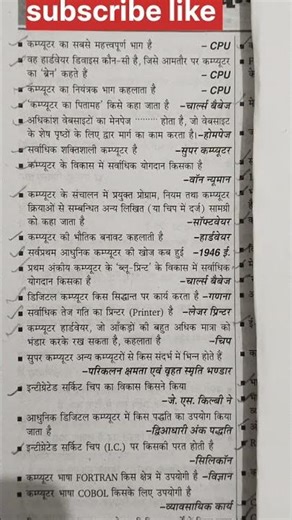 subscribe like
कम्प्यूटर का सबसे महत्त्वपूर्ण भाग है – CPU
वह हार्डवेयर डिवाइस कौन-सी है, जिसे आमतौर पर कम्प्यूटर
का 'ब्रेन' कहते है – CPU
कम्प्यूटर का नियंत्रक भाग कहलाता है – CPU
'कम्प्यूटर का पितामह' किसे कहा जाता है –चार्ल्स बैबेज
अधिकांश वेबसाइटों का मेनपेज ......... होता है, जो वेबसाइट
के शेष पृष्ठों के लिए द्वार मार्ग का काम करता है।–होमपेज
सर्वाधिक शक्तिशाली कम्प्यूटर है –सुपर कम्प्यूटर
कम्प्यूटर के विकास में सर्वाधिक योगदान किसका है
–वॉन न्यूमान
कम्प्यूटर के संचालन में प्रयुक्त प्रोग्राम, नियम तथा कम्प्यूटर
क्रियाओं से सम्बन्धित अन्य लिखित (या चिप में दर्ज) सामग्री
को कहा जाता है –सॉफ्टवेयर
कम्प्यूटर की भौतिक बनावट कहलाती है –हार्डवेयर
सर्वप्रथम आधुनिक कम्प्यूटर की खोज कब हुई –1946 ई.
प्रथम अंकीय कम्प्यूटर के 'ब्लू-प्रिन्ट' के विकास में सर्वाधिक
योगदान किसका है –चार्ल्स बैबेज
डिजिटल कम्प्यूटर किस सिद्धान्त पर कार्य करता है –गणना
सर्वाधिक तेज गति का प्रिन्टर (Printer) है –लेजर प्रिन्टर
कम्प्यूटर हार्डवेयर, जो आँकड़ों की बहुत अधिक मात्रा को
भंडार करके रख सकता है, कहलाता है –चिप
सुपर कम्प्यूटर अन्य कम्प्यूटरों से किस संदर्भ में भिन्न होते हैं
–परिकलन क्षमता एवं वृहत स्मृति भण्डार
इन्टीग्रेटेड सर्किट चिप का विकास किसने किया
–जे. एस. किल्बी ने
आधुनिक डिजिटल कम्प्यूटर में किस पद्धति का उपयोग किया
जाता है –द्विआधारी अंक पद्धति
इन्टीग्रेटेड सर्किट चिप (I.C.) पर किसकी परत होती है
–सिलिकॉन
कम्प्यूटर भाषा FORTRAN किस क्षेत्र में उपयोगी है –विज्ञान
कम्प्यूटर भाषा COBOL किसके लिए उपयोगी है
–व्यावसायिक कार्य